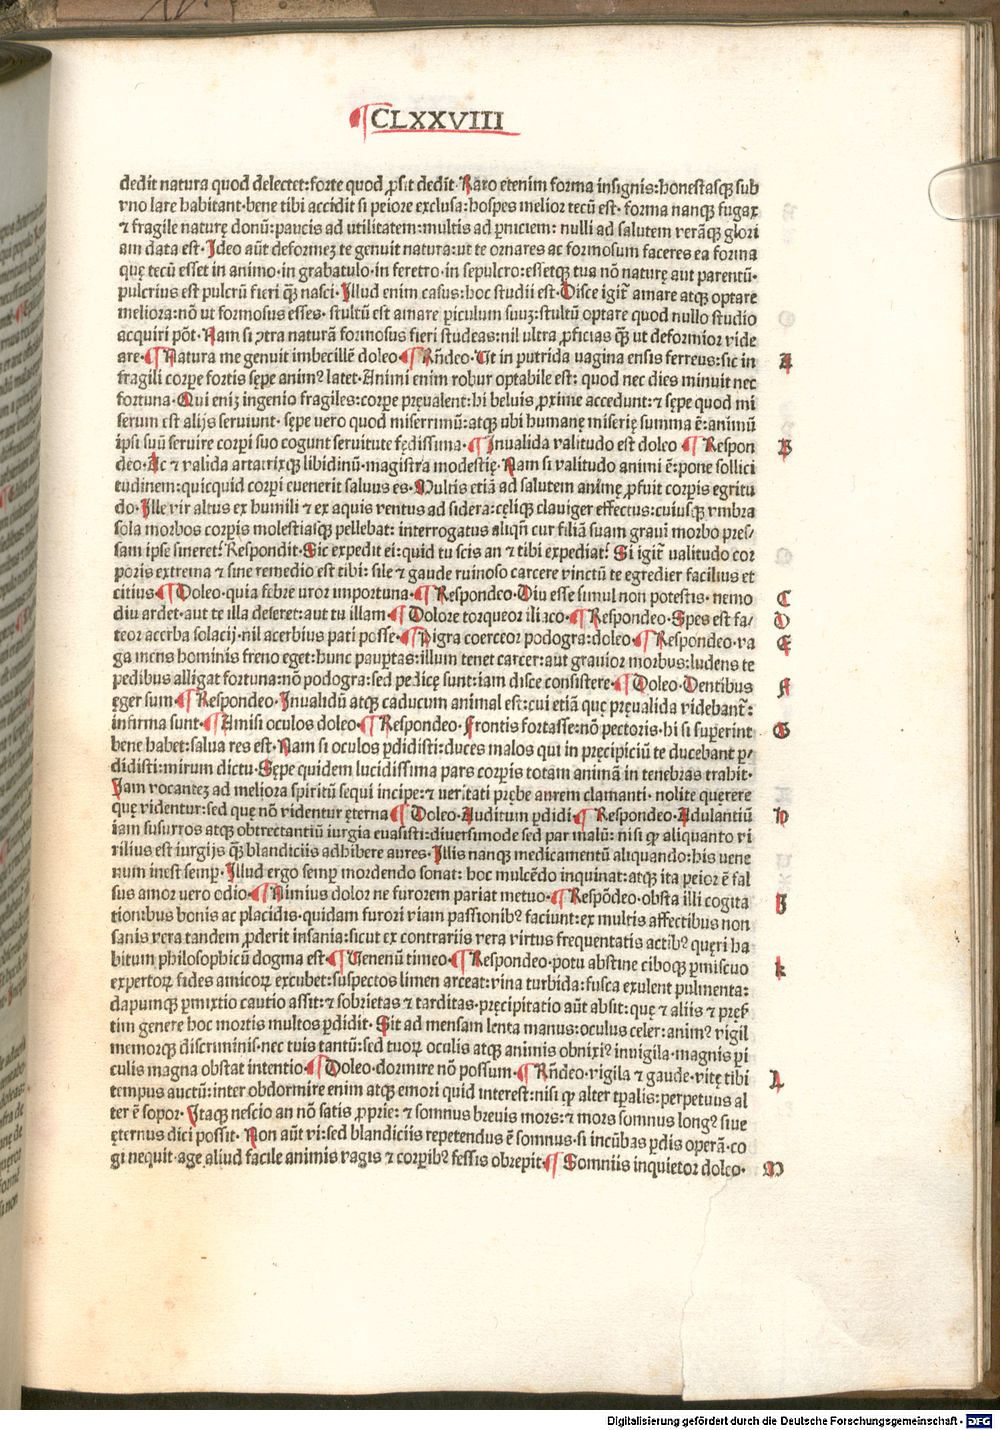 ¶CLXXVIII
dedit natura quod delectet: forte quod ꝓsit dedit· Raro etenim forma insignis: honestasqꝫ sub
vno lare habitant· bene tibi accidit si peiore exclusa: hospes melior tecū est· forma nanqꝫ fugax
⁊ fragile naturę donū: paucis ad utilitatem: multis ad ꝑniciem: nulli ad salutem verāqꝫ glori
am data est· Ideo aūt deformeꝫ te genuit natura: ut te ornares ac formosum faceres ea forma
quę tecū esset in animo· in grabatulo· in feretro· in sepulcro: essetqꝫ tua nō naturę aut parentū·
pulcrius est pulcrū fieri q̄ꝫ nasci· Illud enim casus: hoc studii est· Disce igit᷑ amare atqꝫ optare
meliora: nō ut formosus esses· stultū est amare ꝑiculum suuꝫ: stultū optare quod nullo studio
acquiri pōt· Nam si ꝯtra naturā formosus fieri studeas: nil ultra ꝓficias q̄ꝫ ut deformior vide
are· ¶ Natura me genuit imbecillē doleo ¶ Rn̄deo· Ut in putrida vagina ensis ferreus: sic in A
fragili corpe fortis sępe animꝰ latet· Animi enim robur optabile est: quod nec dies minuit nec
fortuna· Qui eniꝫ ingenio fragiles: corpe pręualent: hi beluis ꝓxime accedunt: ⁊ sępe quod mi
serum est alijs seruiunt· sępe uero quod miserrimū: atqꝫ ubi humanę miserię summa ē: animū
ipsi suū seruire corpi suo cogunt seruitute fędissima· ¶ Inualida valitudo est doleo ¶ Respon B
deo· Ac ⁊ valida artatrixqꝫ libidinū· magistra modestię· Nam si valitudo animi ē: pone sollici
tudinem: quicquid corpi euenerit saluus es· Multis etiā ad salutem animę ꝓfuit corpis egritu
do· Ille vir altus ex humili ⁊ ex aquis ventus ad sidera: cęliqꝫ clauiger effectus: cuiusqꝫ vmbra
sola morbos corpis molestiasqꝫ pellebat: interrogatus aliqn̄ cur filiā suam graui morbo pres/
sam ipse sineret? Respondit· Sic expedit ei: quid tu scis an ⁊ tibi expediat? Si igit᷑ ualitudo cor
poris extrema ⁊ sine remedio est tibi: sile ⁊ gaude ruinoso carcere vinctū te egredier facilius et
citius ¶ Doleo· quia febre uror importuna· ¶ Respondeo· Diu esse simul non potestis· nemo C
diu ardet· aut te illa deseret: aut tu illam ¶ Dolore torqueor iliaco· ¶ Respondeo· Spes est fa/ D
teor acerba solacij· nil acerbius pati posse· ¶ Pigra coerceor podogra: doleo ¶ Respondeo· va E
ga mens hominis freno eget: hunc paupertas: illum tenet carcer: aut grauior morbus: ludens te
pedibus alligat fortuna: nō podogra: sed pedicę sunt: iam disce consistere· ¶ Doleo· Dentibus F
ęger sum· ¶ Respondeo· Inualidū atqꝫ caducum animal est: cui etiā quę pręualida videbant᷑:
infirma sunt· ¶ Amisi oculos doleo· ¶ Respondeo· Frontis fortasse: nō pectoris· hi si superint G
bene habet: salua res est· Nam si oculos ꝑdidisti: duces malos qui in pręcipiciū te ducebant ꝑ/
didisti: mirum dictu· Sępe quidem lucidissima pars corpis totam animā in tenebras trahit·
Iam vocanteꝫ ad meliora spiritū sequi incipe: ⁊ veritati prębe aurem clamanti· nolite quęrere
quę videntur: sed quę nō videntur ęterna ¶ Doleo· Auditum ꝑdidi ¶ Respondeo· Adulantiū H
iam susurros atqꝫ obtrectantiū iurgia euasisti: diuersimode sed par malū: nisi ꝙ aliquanto vi
rilius est iurgijs q̄ꝫ blandiciis adhibere aures· Illis nanqꝫ medicamentū aliquando: his uene
num inest semp· Illud ergo semp mordendo sonat: hoc mulcēdo inquinat: atqꝫ ita peior ē fal
sus amor uero odio· ¶ Nimius dolor ne furorem pariat metuo· ¶ Respōdeo· obsta illi cogita I
tionibus bonis ac placidis· quidam furori viam passionibꝰ faciunt: ex multis affectibus non
sanis vera tandem ꝓderit insania: sicut ex contrariis vera virtus frequentatis actibꝰ quęri ha
bitum philosophicū dogma est ¶ Uenenū timeo ¶ Respondeo· potu abstine ciboqꝫ ꝑmiscuo K
expertoꝝ fides amicoꝝ excubet: suspectos limen arceat: vina turbida: fusca exulent pulmenta:
dapumqꝫ ꝑmixtio cautio assit: ⁊ sobrietas ⁊ tarditas· pręcipitatio aūt absit: quę ⁊ aliis ⁊ pręs
tim genere hoc mortis multos ꝑdidit· Sit ad mensam lenta manus: oculus celer: animꝰ vigil
memorqꝫ discriminis· nec tuis tantū: sed tuoꝝ oculis atqꝫ animis obnixiꝰ inuigila· magnis ꝑi
culis magna obstat intentio· ¶ Doleo· dormire nō possum· ¶ Rn̄deo· vigila ⁊ gaude· vitę tibi L
tempus auctū: inter obdormire enim atqꝫ emori quid interest: nisi ꝙ alter tꝑalis: perpetuus al
ter ē sopor· Itaqꝫ nescio an nō satis ꝓprie: ⁊ somnus breuis mors: ⁊ mors somnus longꝰ siue
ęternus dici possit· Non aūt vi: sed blandiciis repetendus ē somnus· si incūbas ꝑdis operā· co
gi nequit· age aliud facile animis vagis ⁊ corpibꝰ fessis obrepit· ¶ Somniis inquietor doleo· M
Digitalisierung gefördert durch die Deutsche Forschungsgemeinschaft - DFG